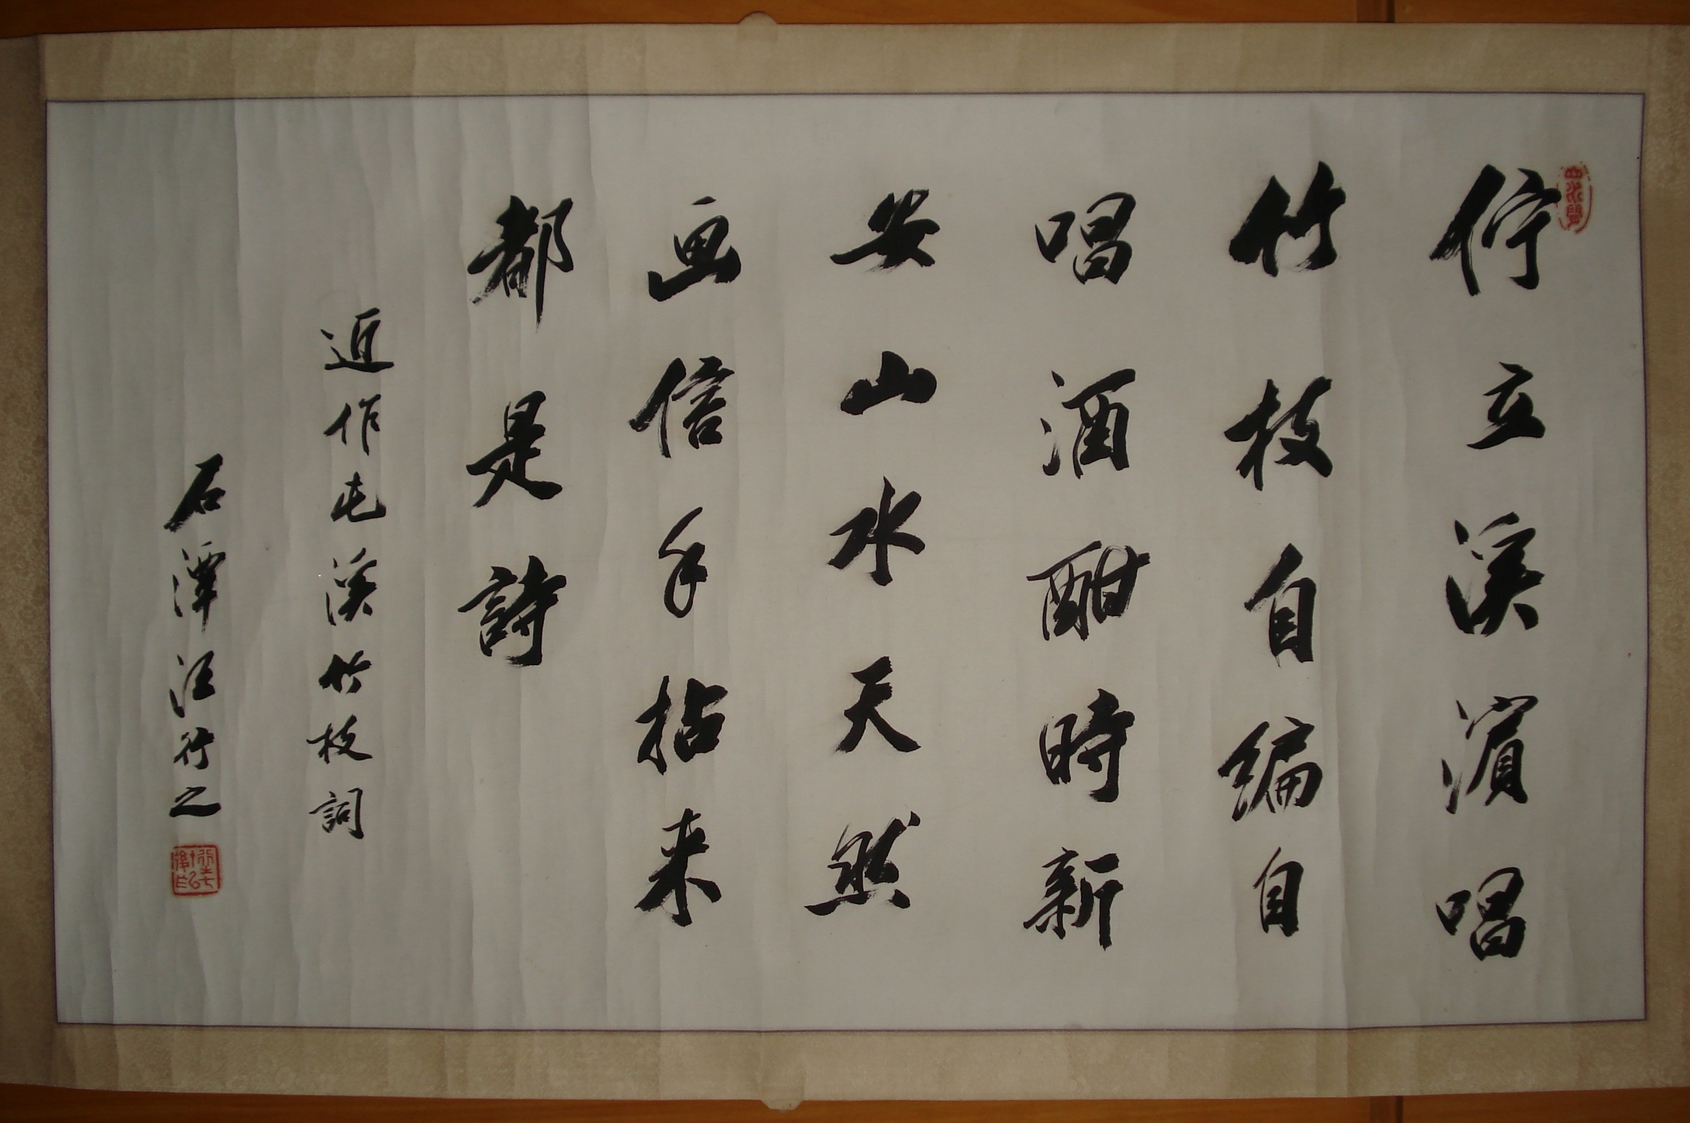 佇立溪濵唱
竹枝自编自
唱酒酣時新
安山水天然
画信手拈来
都是詩
近作屯溪竹枝詞
石潭汪行之